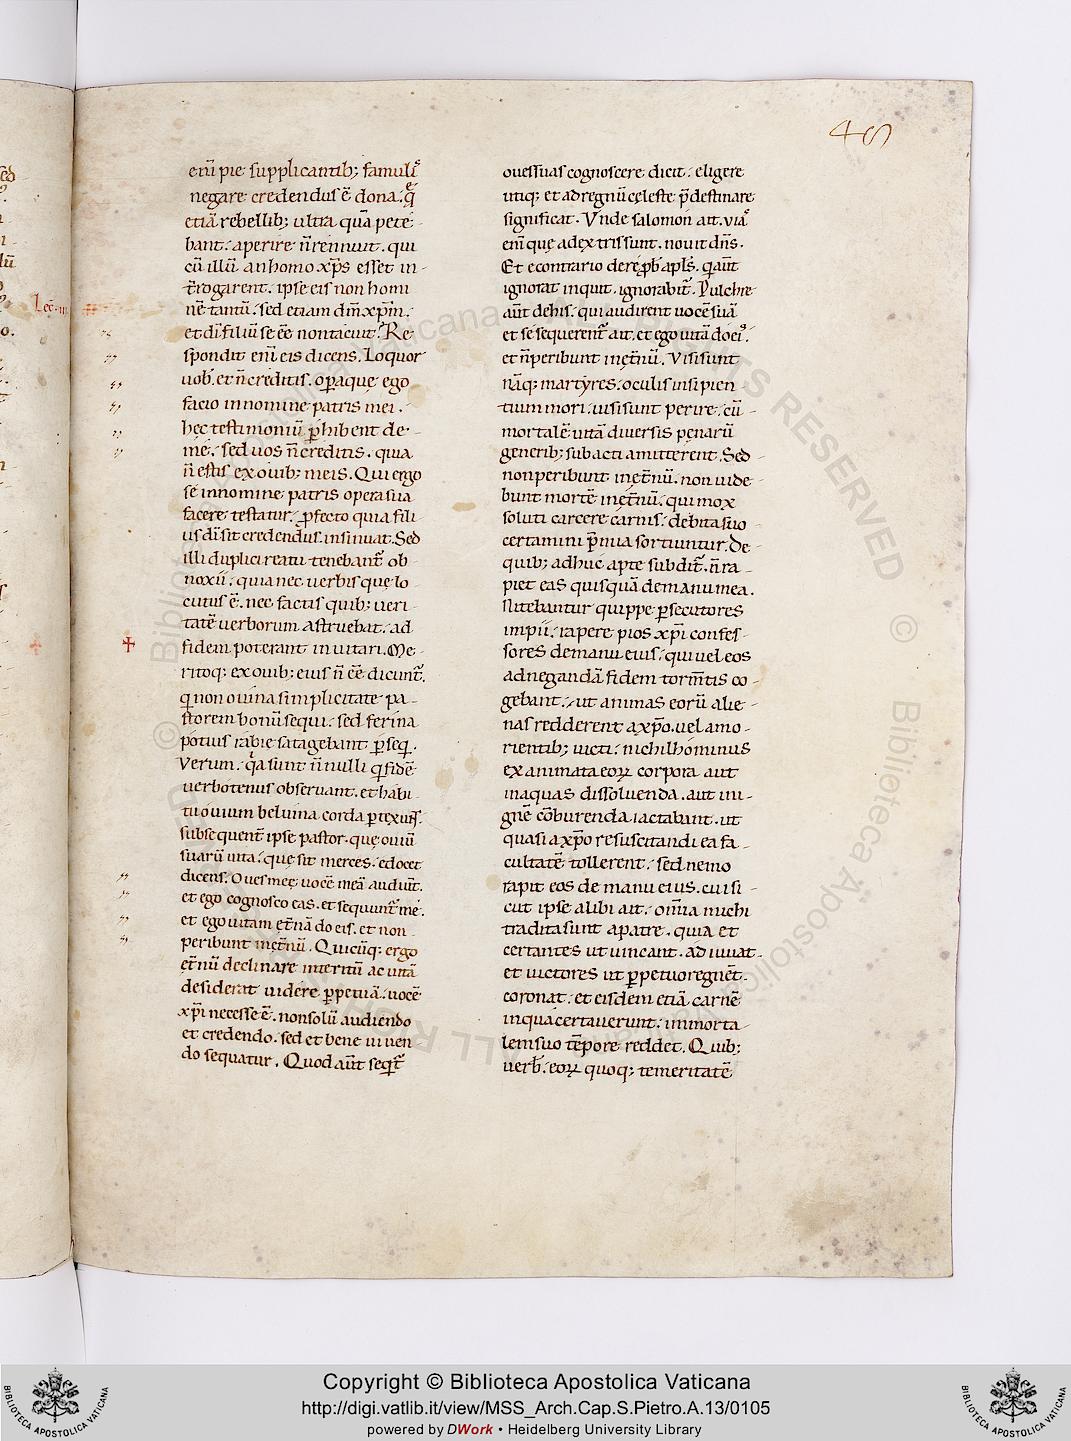 48
Lec. iii
enī pie supplicantib; famuli᷒
negare credendus ē dona. q̄
etiā rebellib; ultra quā pete-
bant. aperire ñ rennuit. qui
cū illū an homo xp̄s esset in-
t̄rogarent. ipse eis non homi
nē tantū. sed etiam dm̄ xp̄m.
et di filiū se eē non tacuit. Re
spondit enī eis dicens. Loquor
uob. et ñ creditis. opaque ego
facio in nomine patris mei.
hec testimoniū phibent de
me. sed uos ñ creditis. quia
ñ estis ex ouib; meis. Qui ergo
se in nomine patris opera sua
facere testatur. pfecto quia fili
us di sit credendus. insinuat. Sed
illi duplici reatu tenebant̄ ob
noxii. quia nec uerbis quę lo
cutus ē. nec factis quib; ueri-
tatē uerborum astruebat. ad
fidem poterant inuitari. Me-
ritoq; ex ouib; eius ñ eē dicunt̄.
q non ouina simplicitate pa-
storem bonū sequi. sed ferina
potius rabie satagebant pseq.
Verum. qa sunt ñ nulli q fidē
uerbotenus obseruant. et habi-
tu ouium beluina corda ptexunt.
subsequent̄ ipse pastor. quę ouiū
suarū uita. quę sit merces. edocet
dicens. Oues meę uocē meā audiunt.
et ego cognosco eas. et sequunt̄ me.
et ego uitam et̄nā do eis. et non
peribunt in et̄nū. Quicūq; ergo
et̄nū declinare interitū ac uitā
desiderat uidere ppetuā. uocē
xp̄i necesse ē. non solū audiendo
et credendo. sed et bene uiuen
do sequatur. Quod aūt seqit̄
oues suas cognoscere dicit. eligere
utiq; et ad regnū cęleste p̄destinare
significat. Vnde salomon ait. uia᷒
enī quę a dextris sunt. nouit dn̄s.
Et e contrario de reprob apls̄. q aūt
ignorat inquit. ignorabit̄. Pulchre
aūt de his. qui audirent uocē suā
et se sequerent̄ ait. et ego uitā do ei᷒.
et ñ peribunt in ęt̄nū. Visi sunt
nāq; martyres. oculis insipien
tium mori. uisi sunt perire. cū
mortalē uitā diuersis pęnarū
generib; subacti amitterent. Sed
non peribunt in ęt̄nū. non uide
bunt mortē in ęt̄nū. qui mox
soluti carcere carnis. debita suo
certamini p̄mia sortiuntur. De
quib; adhuc apte subdit̄. ñ ra-
piet eas quisquā de manu mea.
Nitebantur quippe psecutores
impii. rapere pios xp̄i confes-
sores de manu eius. qui uel eos
ad negandā fidem torm̄tis co-
gebant. ut animas eorū alie-
nas redderent a xp̄o. uel a mo-
rientib; uicti. nichilhominus
exanimata eoꝝ corpora aut
in aquas dissoluenda. aut in i-
gnē cōburenda iactabant. ut
quasi a xp̄o resuscitandi ea fa-
cultatē tollerent. sed nemo
rapit eos de manu eius. cui si-
cut ipse alibi ait. om̄ia michi
tradita sunt a patre. quia et
certantes ut uincant. adiuuat.
et uictores ut ppetuo regnēt.
coronat. et eisdem etiā carnē
in qua certauerunt. immorta-
lem suo tēpore reddet. Quib;
uerb. eoꝝ quoq; temeritatē
Copyright © Biblioteca Apostolica Vaticana
http://digi.vatlib.it/view/MSS_Arch.Cap.S.Pietro.A.13/0105
powered by DWork • Heidelberg University Library